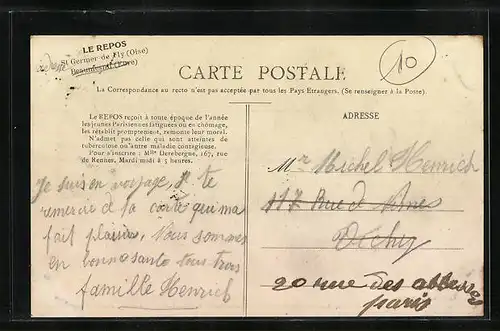 LE REPOS
St Germer de Fly (Oise)
10
CARTE POSTALE
La Correspondance au recto n'est pas acceptée par tous les Pays Etrangers. (Se renseigner à la Poste)
Le REPOS reçoit à toute époque de l'année
les jeunes Parisiennes fatiguées ou en chômage,
les rétablit promptement, remonte leur moral.
N'admet pas celle qui sont atteintes de
tuberculose ou autre maladie contagieuse.
Pour s'inscrire : Mlle Derebergue, 167, rue
de Rennes, Mardi midi à 5 heures.
Je suis en voyage, je te
remercie de ta carte qui ma
fait plaisir, Nous sommes
en bonne santé tous trois
famille Henrich
ADRESSE
Mr Michel Henrich
117 Rue de
Vichy
20 rue des abbesses
paris